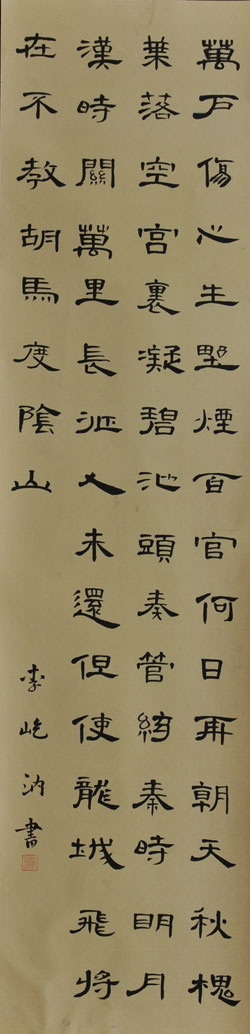 萬戶傷心生野煙百官何日再朝天秋槐
葉落空宮裏凝碧池頭奏管絃秦時明月
漢時關萬里長征人未還但使龍城飛將
在不教胡馬度陰山
李屹汭書